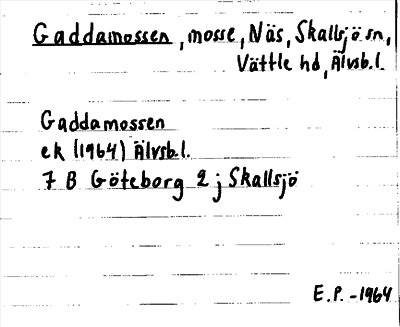 Gaddamossen, mosse, Näs, Skallsjö sn,
Vättle hd, Älvsb.l.
Gaddamossen
ek (1964) Älvsb.l.
7 B Göteborg 2 j Skallsjö
E.P. -1964